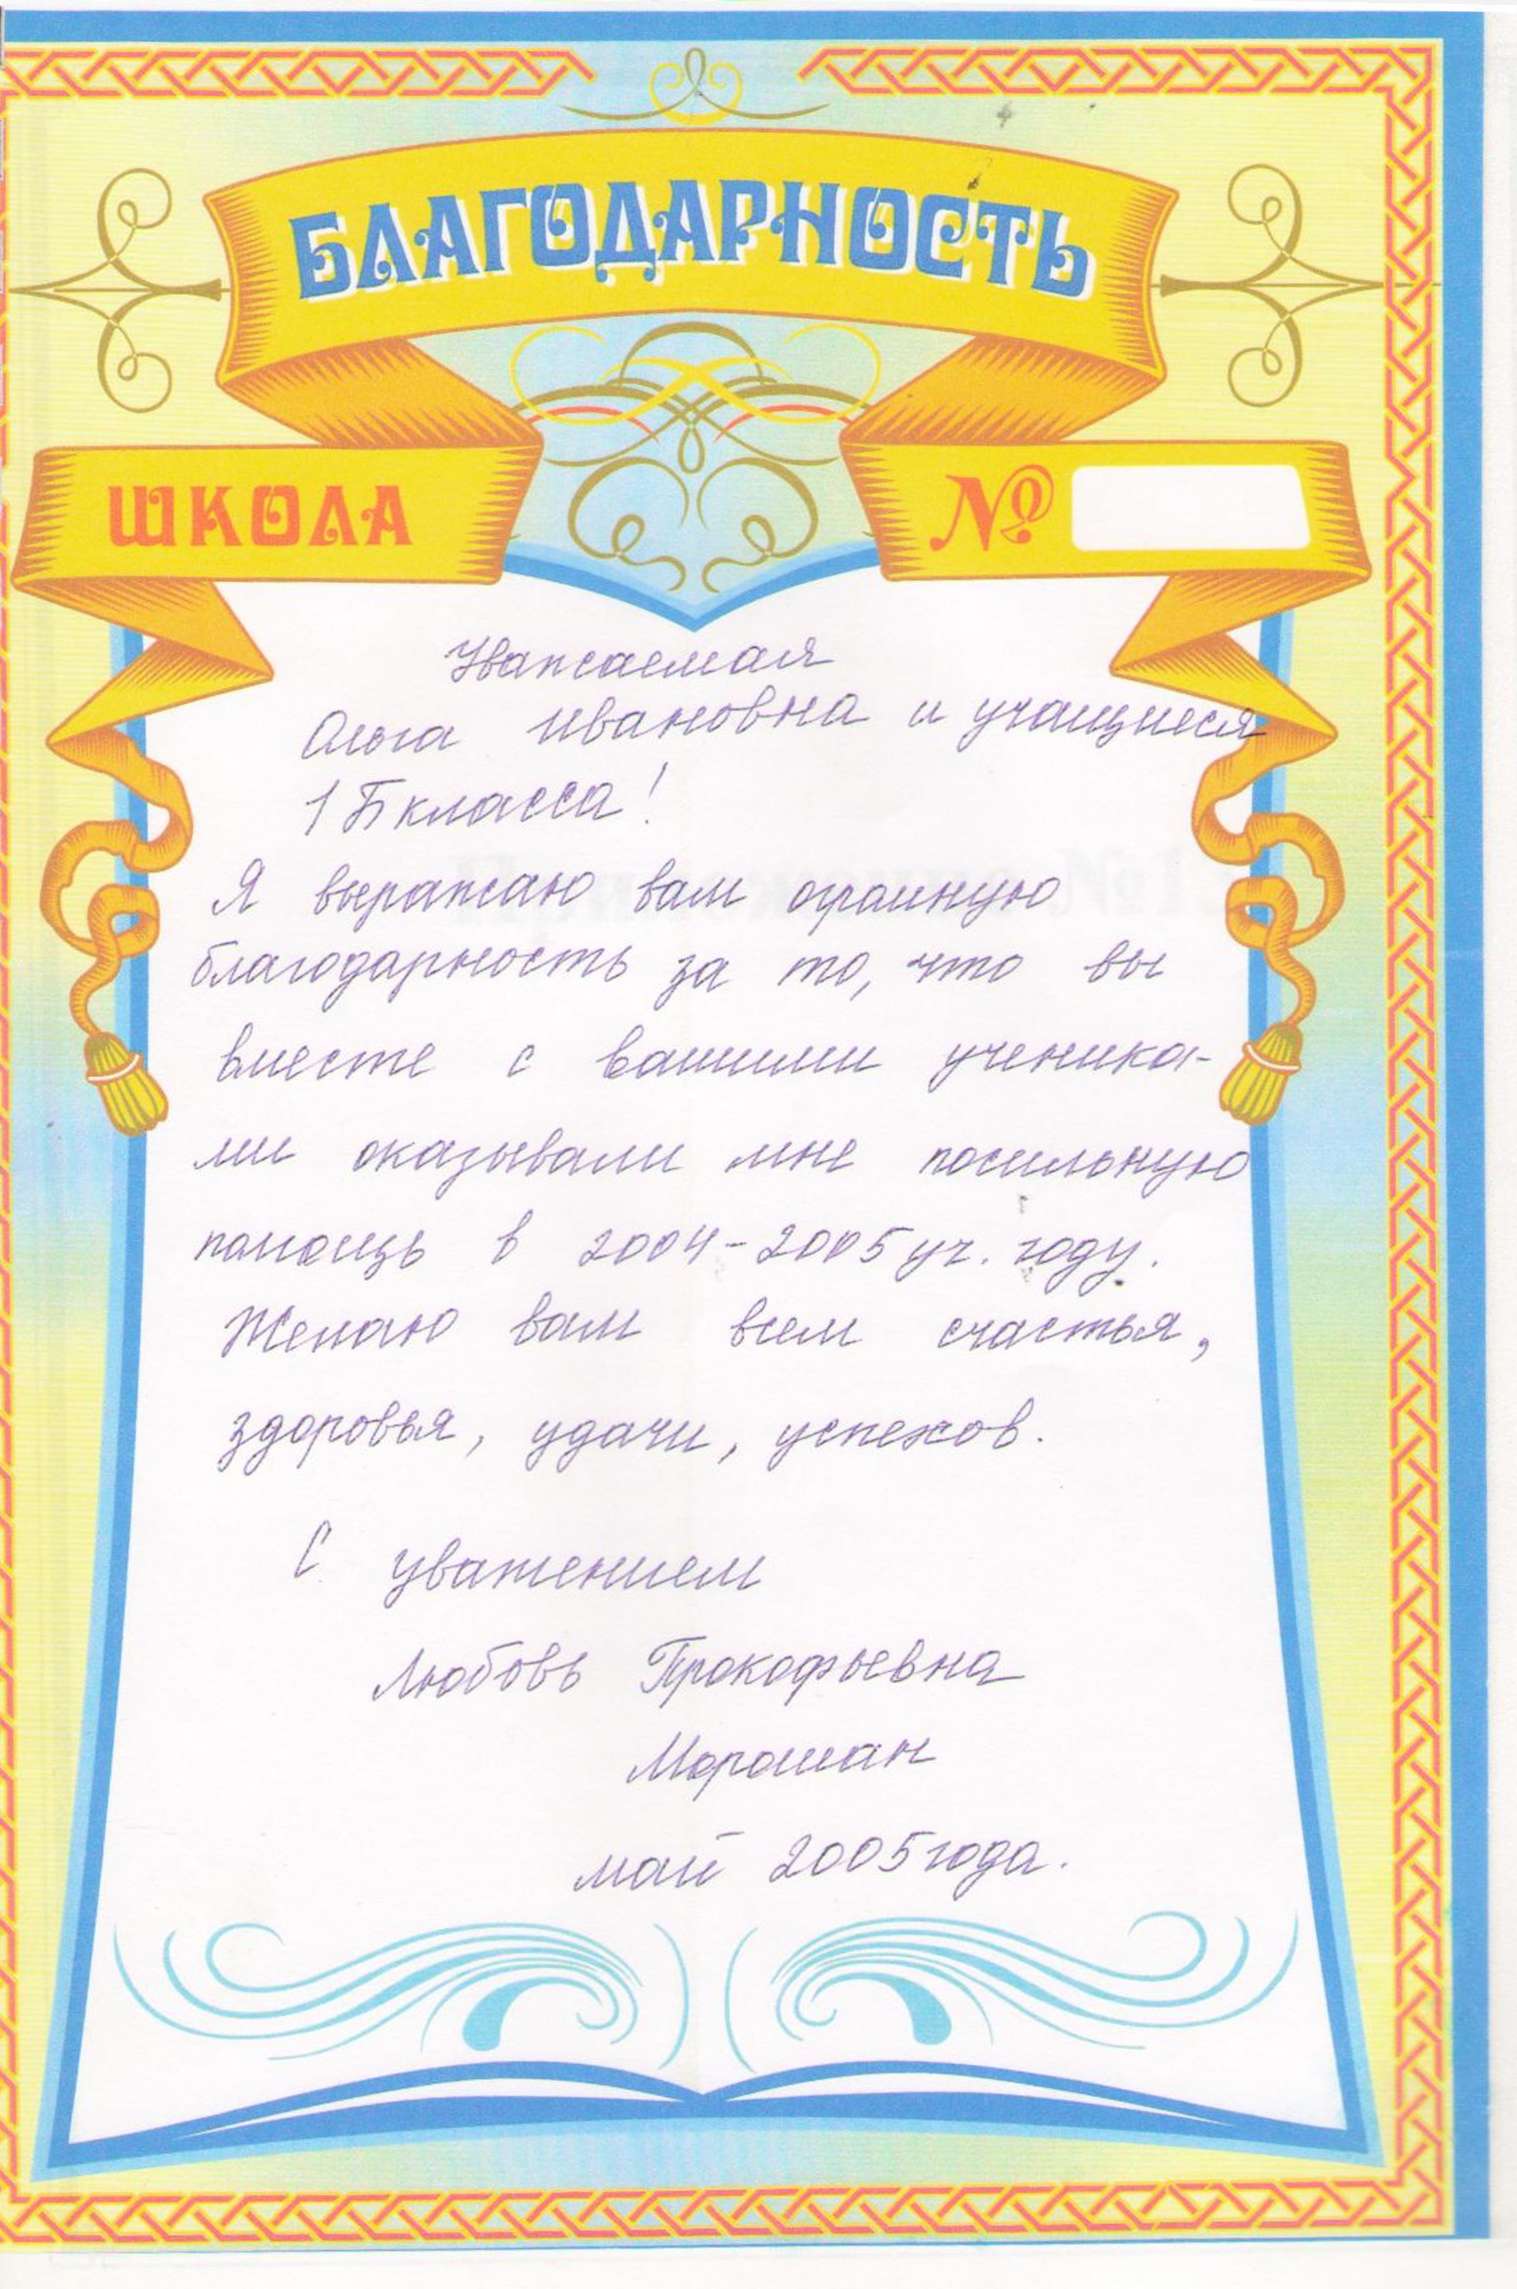 БЛАГОДАРНОСТЬ
ШКОЛА №
Уважаемая
Ольга Ивановна и учащиеся
1 Б класса!
Я выражаю вам огромную
благодарность за то, что вы
вместе с вашими ученика-
ми оказывали мне посильную
помощь в 2004-2005 уч. году.
Желаю вам всем счастья,
здоровья, удачи, успехов.
С уважением
Любовь Прокофьевна
Морошан
май 2005 года.